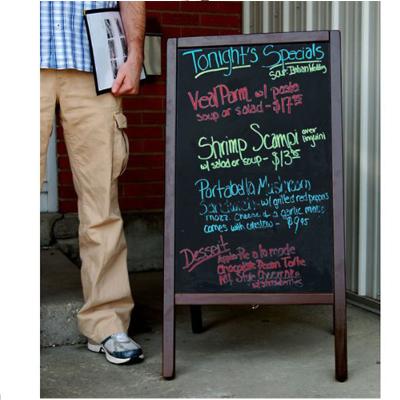 Tonight's Specials
Soup: Italian Wedding
Veal Parm w/ pasta
soup or salad - $17.95
Shrimp Scampi over
linguini
w/ salad or soup - $13.95
Portabella Mushroom
Sandwich w/ grilled red peppers
mozz. cheese & a garlic mayo
comes w/ coleslaw - $9.95
Dessert
Apple Pie a la mode
Chocolate Pecan Torte
N.Y. Style Cheesecake
w/ strawberries